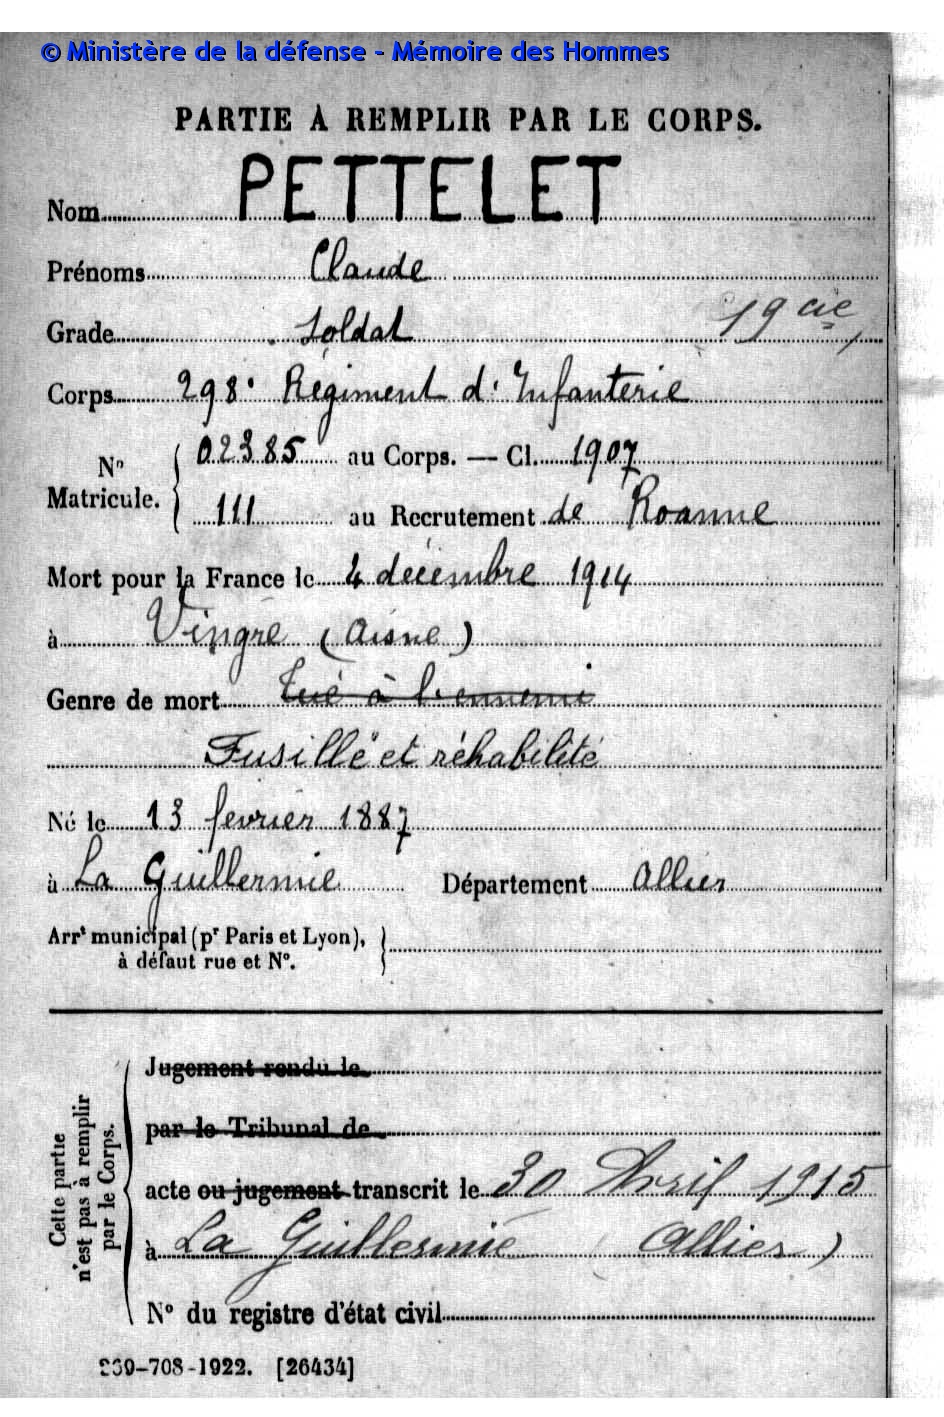 © Ministère de la défense - Mémoire des Hommes
PARTIE À REMPLIR PAR LE CORPS.
Nom PETTELET
Prénoms Claude
Grade Soldat 19 cie
Corps 298e Régiment d'Infanterie
N° Matricule. 02385 au Corps. — Cl. 1907
111 au Recrutement de Roanne
Mort pour la France le 4 décembre 1914
à Vingré (Aisne)
Genre de mort Tué à l'ennemi
Fusillé et réhabilité
Né le 13 février 1887
à La Guillermie Département Allier
Arrt municipal (pr Paris et Lyon),
à défaut rue et N°.
Cette partie
n'est pas à remplir
par le Corps.
Jugement rendu le
par le Tribunal de
acte ou jugement transcrit le 30 Avril 1915
à La Guillermie (Allier)
N° du registre d'état civil
-708-1922. [26434]